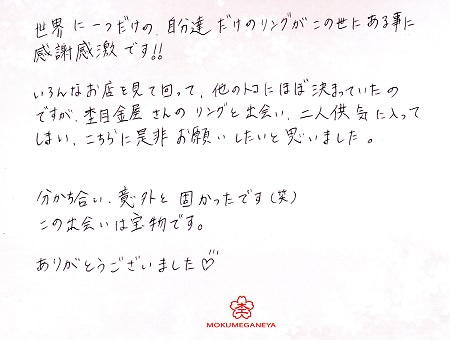 世界に一つだけの、自分達だけのリングがこの世にある事に
感謝感激です!!
いろんなお店を見て回って、他のトコにほぼ決まっていたの
ですが、杢目金屋さんのリングと出会い、二人供気に入って
しまい、こちらに是非お願いしたいと思いました。
分かち合い、意外と固かったです(笑)
この出会いは宝物です。
ありがとうございました♡
MOKUMEGANEYA